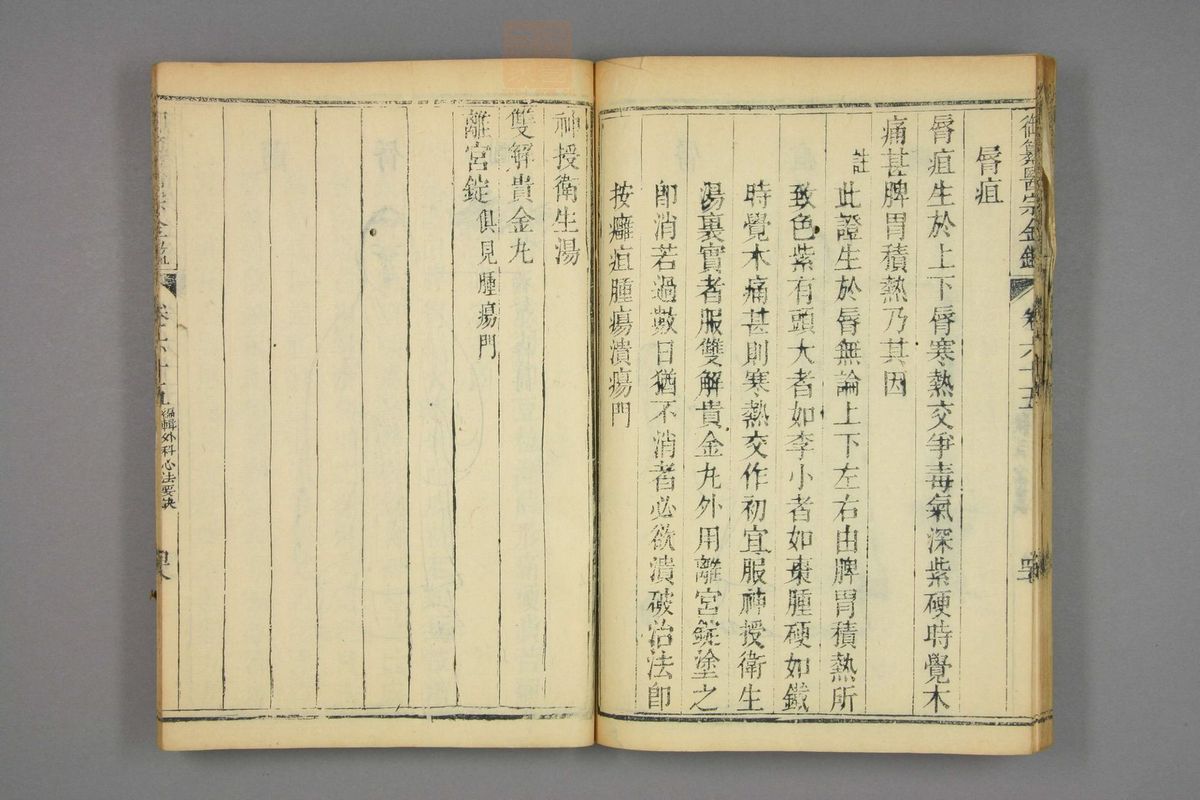 御纂醫宗金鑑 卷六十五
脣疽
脣疽生於上下脣寒熱交爭毒氣深紫硬時覺木
痛甚脾胃積熱乃其因
註
此證生於脣無論上下左右由脾胃積熱所
致色紫有頭大者如李小者如棗腫硬如鐵
時覺木痛甚則寒熱交作初宜服神授衛生
湯裏實者服雙解貴金丸外用離宮錠塗之
卽消若過數日猶不消者必欲潰破治法卽
按癰疽腫瘍潰瘍門
神授衛生湯
雙解貴金丸
離宮錠 俱見腫瘍門
編輯外科心法要訣